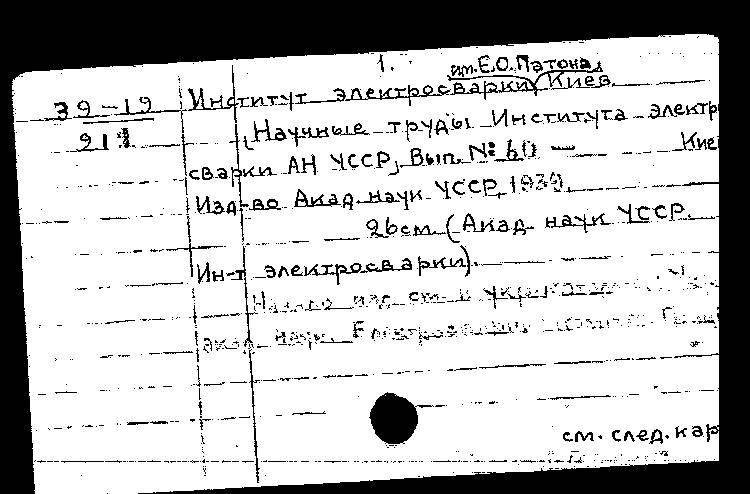 1.
им. Е.О. Патона
39-19 Институт электросварки, Киев.
[Научные труды Института электро
сварки АН УССР], Вып. № 60 — Кие
Изд-во Акад. наук УССР, 1939.
26см. (Акад. наук УССР.
Ин-т электросварки).
Начало изд. см. в укр. каталоге.
акад. наук.
см. след. кар